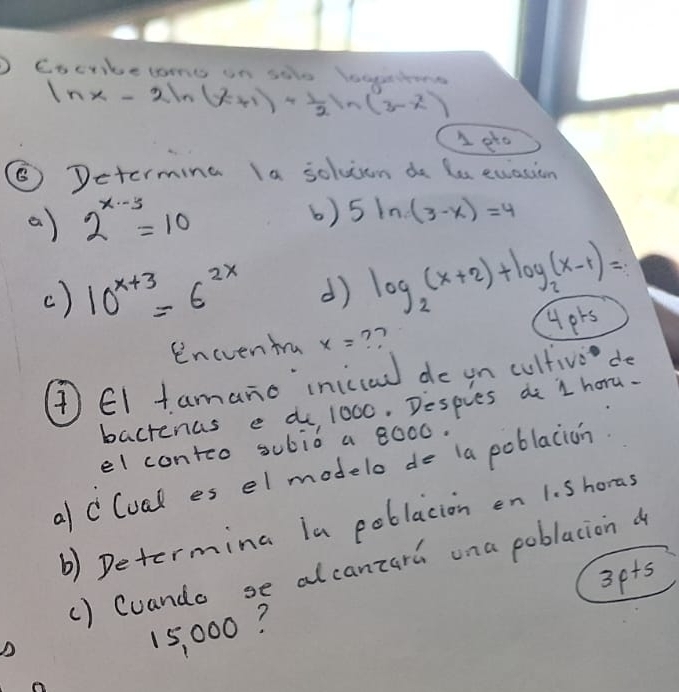 Escribe como un solo logaritmo
ln x - 2 ln (x²+1) + ½ ln (3-x²)
1 pto
⑥ Determina la solución de la ecuación
a) 2^(x-3) = 10 b) 5 ln (3-x) = 4
c) 10^(x+3) = 6^(2x) d) log₂(x+2) + log₂(x-1) =
Encuentra x = ??
4 pts
⑦ El tamaño inicial de un cultivo de
bacterias e de 1000. Despues de 1 hora
el conteo subió a 8000.
a) Cual es el modelo de la población.
b) Determina la población en 1.5 horas
c) Cuando se alcanzará una población d
15,000?
3pts